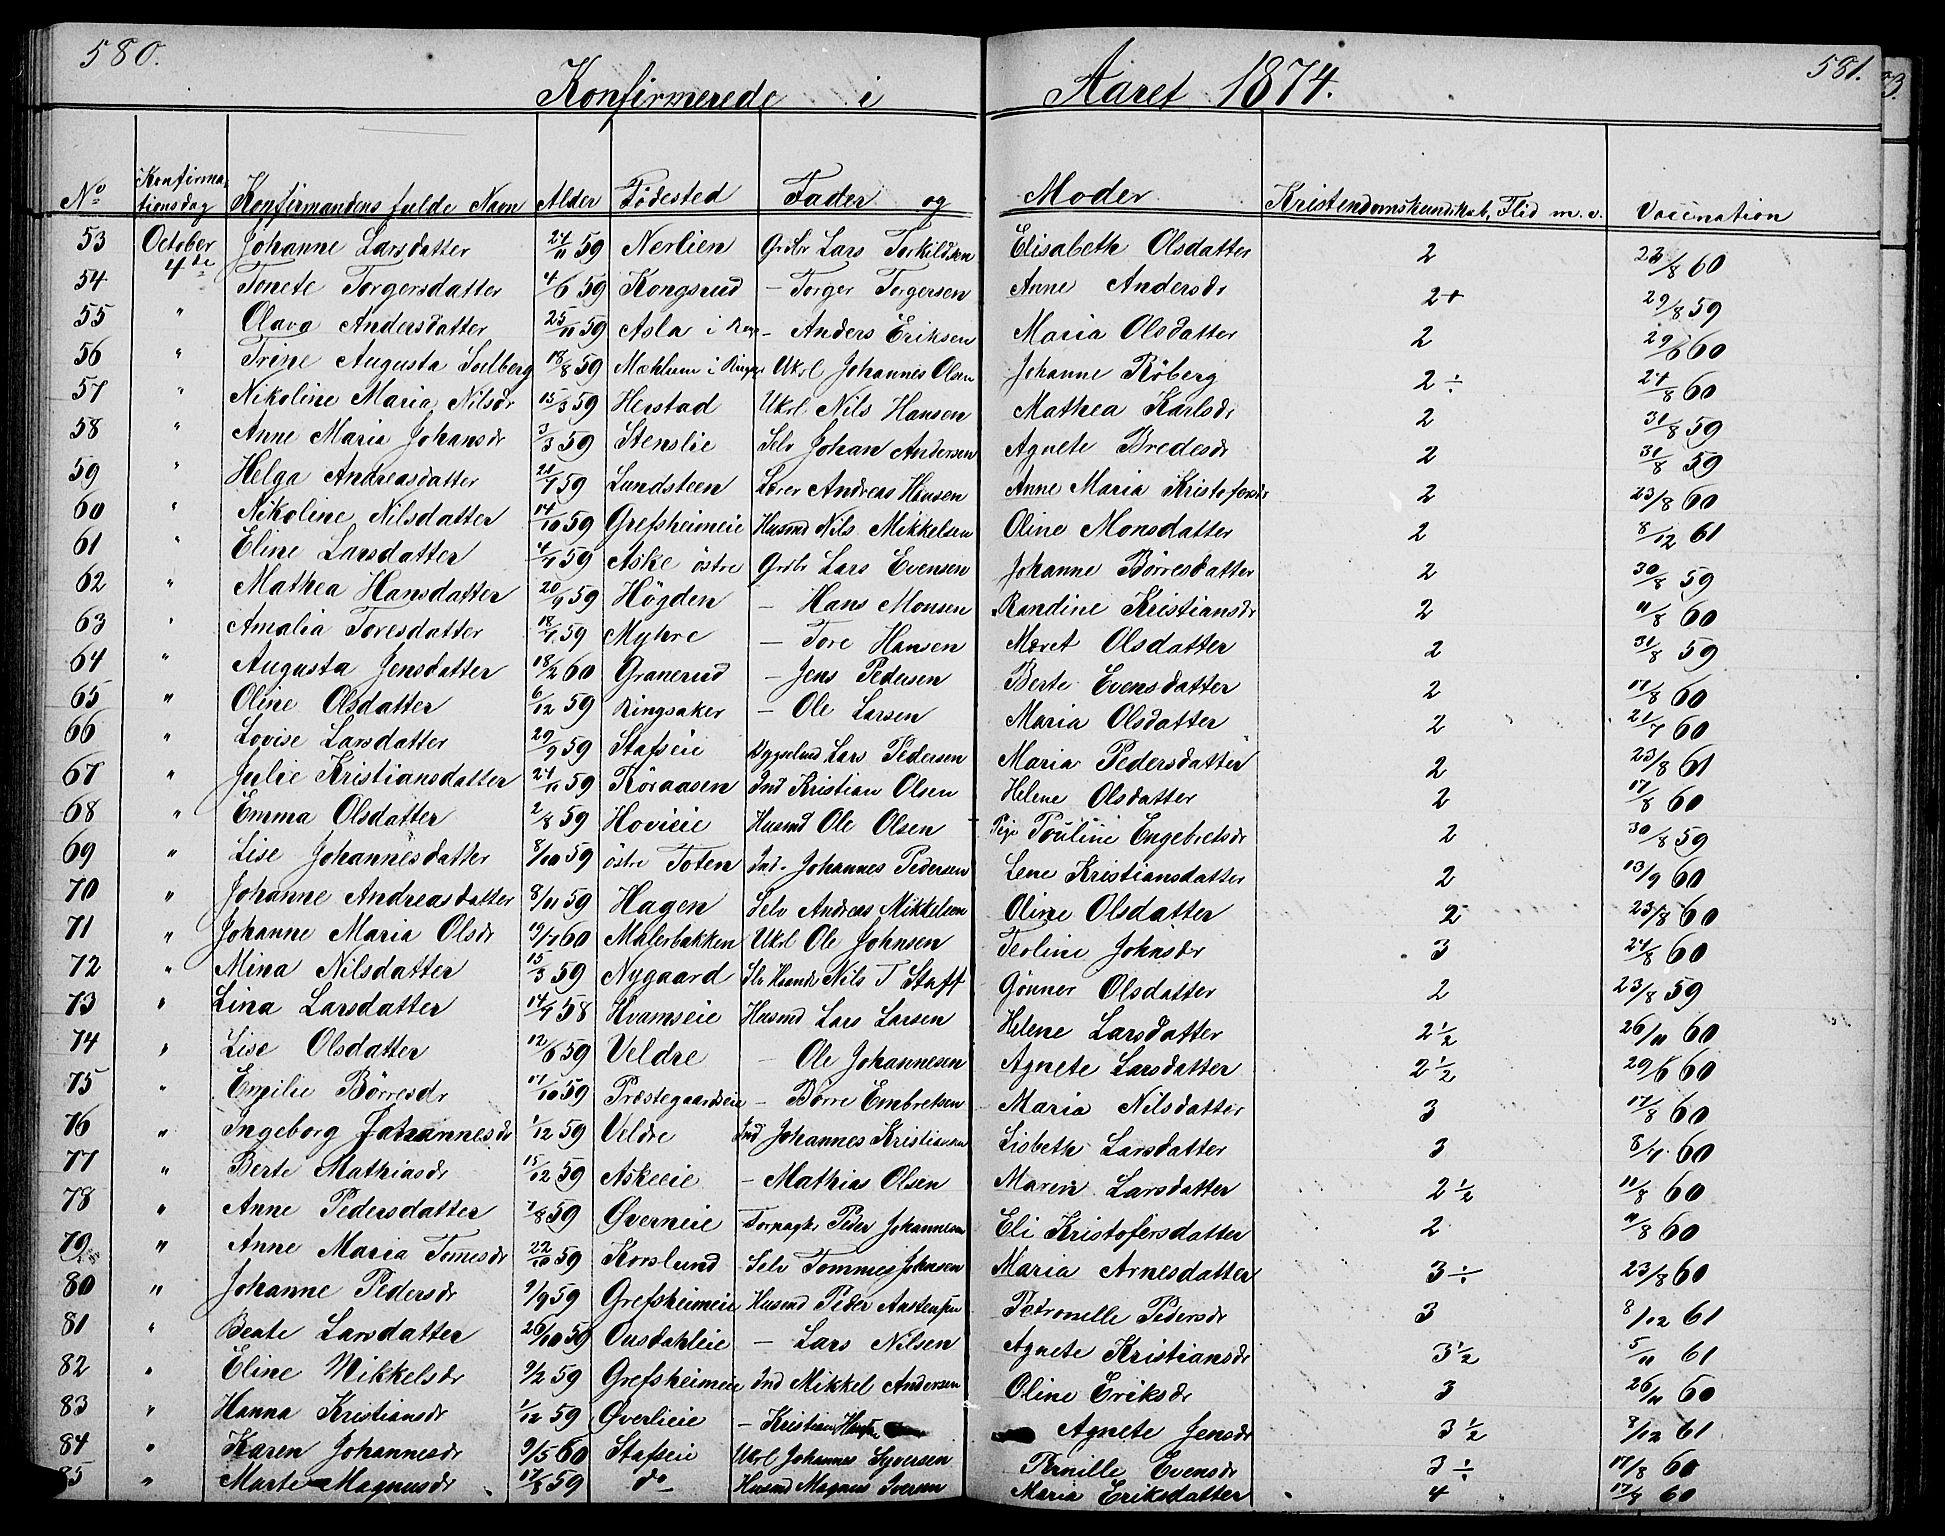 580. 581.
Konfirmerede i Aaret 1874.
No Konfirmationsdag Konfirmandens fulde Navn Alder Födested Fader og Moder Kristendomskundskab, Flid m. v. Vaccination
53 October 4de Johanne Larsdatter 24/11 59 Nerlien Grdbr Lars Torkildsen Elisabeth Olsdatter 2 23/8 60
54 Tonete Torgersdatter 4/6 59 Kongsrud – Torger Torgersen Anne Andersdr 2+ 29/8 59
55 " Olava Andersdatter 25/11 59 Asla i Ring – Anders Eriksen Maria Olsdatter 2 29/6 60
56 " Trine Augusta Soelberg 18/8 59 Mæhlum i Rings Ukrl Johannes Olsen Johanne Röberg 2 ÷ 24/8 60
57 " Nikoline Maria Nilsdr 15/3 59 Herstad Ukrl Nils Hansen Mathea Karlsdr 2 31/8 59
58 " Anne Maria Johansdr 3/3 59 Stenslie Selv Johan Andersen Agnete Bredesdr 2 31/8 59
59 " Helga Andreasdatter 21/7 59 Lundsteen Lærer Andreas Hansen Anne Maria Kristofersdr 2 23/8 60
60 " Nikoline Nilsdatter 14/10 59 Grefsheimeie Husmd Nils Mikkelsen Oline Monsdatter 2 8/12 61
61 " Eline Larsdatter 4/7 59 Aske östre Grdbr Lars Evensen Johanne Börresdatter 2 30/8 59
62 " Mathea Hansdatter 20/9 59 Högden – Hans Monsen Randine Kristiansdr 2 11/8 60
63 " Amalia Toresdatter 18/7 59 Myhre – Tore Hansen Mæret Olsdatter 2 31/8 59
64 " Augusta Jensdatter 18/2 60 Granerud – Jens Pedersen Berte Evensdatter 2 17/8 60
65 " Oline Olsdatter 6/12 59 Ringsaker – Ole Larsen Maria Olsdatter 2 21/7 60
66 " Lovise Larsdatter 29/9 59 Stafseie Lars Pedersen Maria Pedersdatter 2 23/8 61
67 " Julie Kristiansdatter 24/11 59 Köraasen Ind Kristian Olsen Helene Olsdatter 2 17/8 60
68 " Emma Olsdatter 2/8 59 Hovieie Husmd Ole Olsen Pige Pouline Engebretsdr 2 30/8 59
69 " Lise Johannesdatter 8/10 59 östre Toten Ind. Johannes Pedersen Lene Kristiansdatter 2 13/9 60
70 " Johanne Andreasdatter 8/11 59 Hagen Selv Andreas Mikkelsen Oline Olsdatter 2 23/8 60
71 " Johanne Maria Olsdr 19/1 60 Malerbakken Ukrl Ole Johnsen Teoline Johnsdr 3 24/8 60
72 " Mina Nilsdatter 15/3 59 Nygaard Nils T Staff Gönner Olsdatter 2 23/8 59
73 " Lina Larsdatter 14/7 58 Kvamseie Husmd Lars Larsen Helene Larsdatter 2 1/2 26/11 60
74 " Lise Olsdatter 12/6 59 Veldre – Ole Johannesen Agnete Larsdatter 2 1/2 29/6 60
75 " Emilie Börresdr 17/10 59 Præstegaardseie – Börre Embretsen Maria Nilsdatter 3 17/8 60
76 " Ingeborg Johannesdr 1/12 59 Veldre Ind Johannes Kristiansen Lisbeth Larsdatter 3 8/7 60
77 " Berte Mathiasdr 15/12 59 Askeeie – Mathias Olsen Maren Larsdatter 2 1/2 11/8 60
78 " Anne Pedersdatter 7/8 59 Överneie Forpagtr Peder Johannesen Eli Kristofersdatter 2 11/8 60
79 " Anne Maria Tomesdr 22/10 59 Korslund Selv Tommes Johnsen Maria Arnesdatter 3 ÷ 23/8 60
80 " Johanne Pedersdr 9/9 59 Grefsheimeie Husmd Peder Austensen Petronelle Pedersdr 3 8/12 61
81 " Beate Larsdatter 26/10 59 Ousdahleie – Lars Nilsen Agnete Kristiansdr 3 1/2 5/11 61
82 " Eline Mikkelsdr 9/2 59 Grefsheimeie Ind Mikkel Andersen Oline Eriksdr 3 26/12 60
83 " Hanna Kristiansdr 1/12 59 Överlieie – Kristian Agnete Jensdr 3 1/2 8/12 61
84 " Karen Johannesdr 9/5 60 Stafseie Ukrl Johannes Syversen Pernille Evensdr 3 ÷ 17/8 60
85 " Marte Magnusdr 17/8 59 do Husmd Magnus Iversen Maria Eriksdatter 4 17/9 60